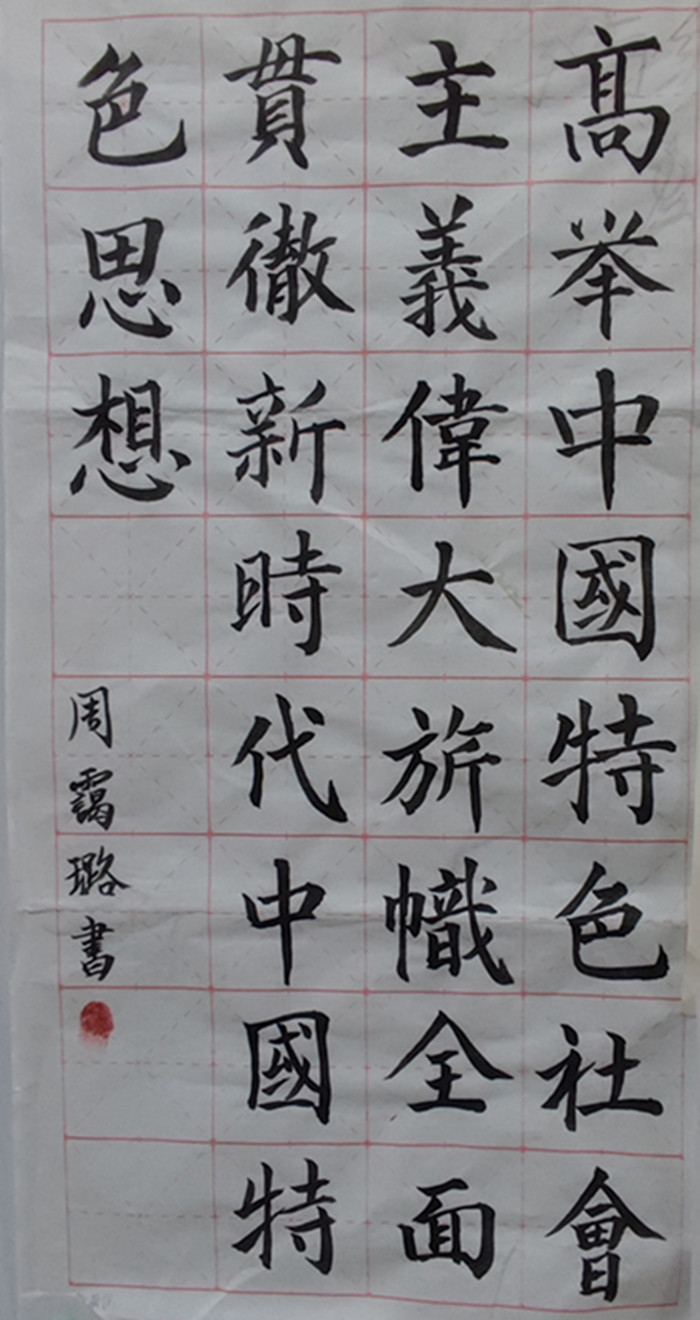 高举中國特色社會
主義偉大旂幟全面
貫徹新時代中國特
色思想
周靄璐書